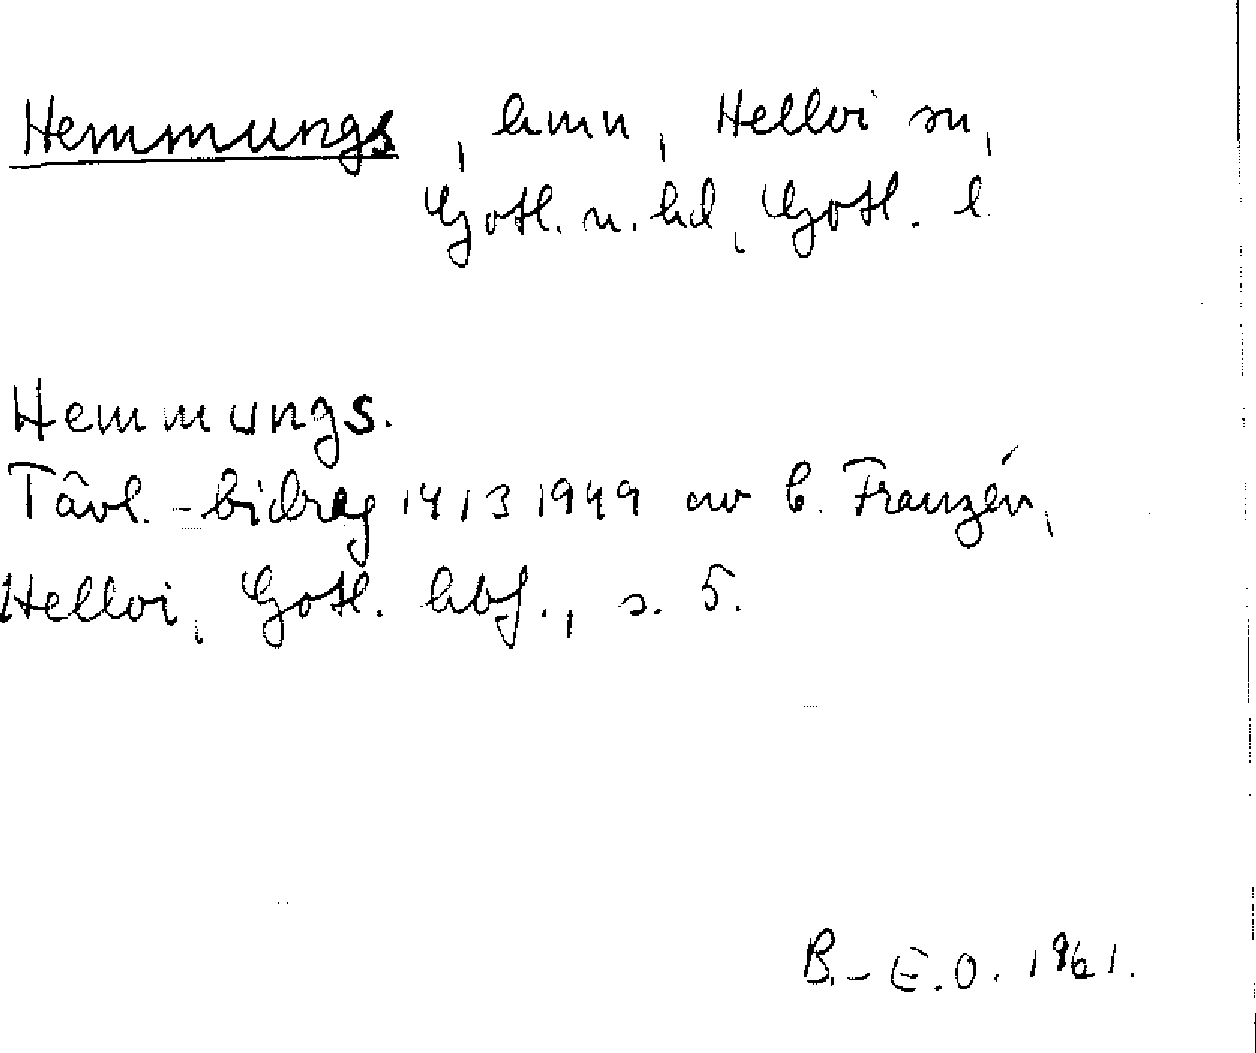 Hemmungs, hmn, Hellvi sn,
Gotl. n. hd, Gotl. l.
Hemmungs.
Tävl.-bidrag 14/3 1949 av B. Franzén,
Hellvi, Gotl. hbf., s. 5.
B.-E.O. 1961.